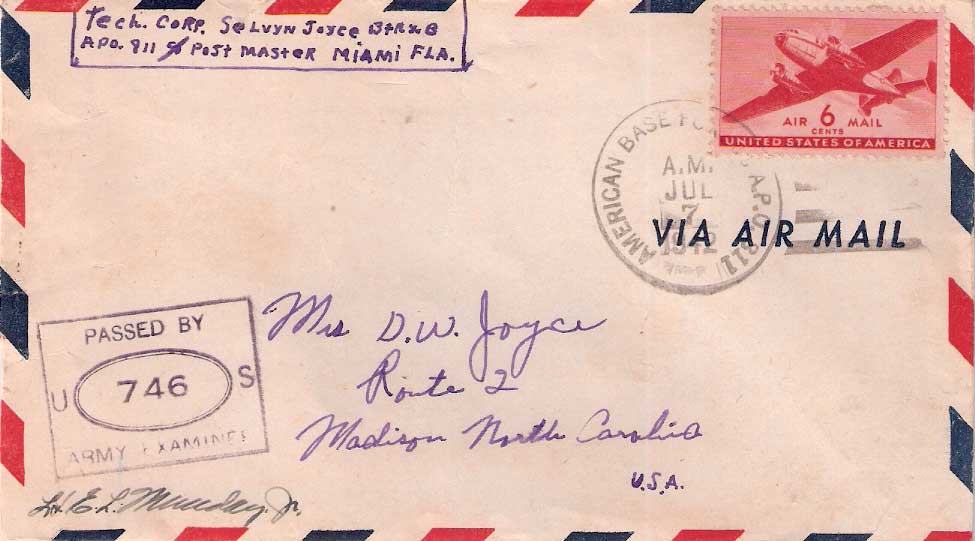 Tech. Corp. Selvyn Joyce Btry B
APO. 811 % Post Master Miami Fla.
AIR 6 MAIL
CENTS
UNITED STATES OF AMERICA
AMERICAN BASE A.P.O. 811
A.M.
JUL
7
1942
VIA AIR MAIL
PASSED BY
U 746 S
ARMY EXAMINER
Mrs D.W. Joyce
Route 2
Madison North Carolina
U.S.A.
Lt. E. L. Munday, Jr.